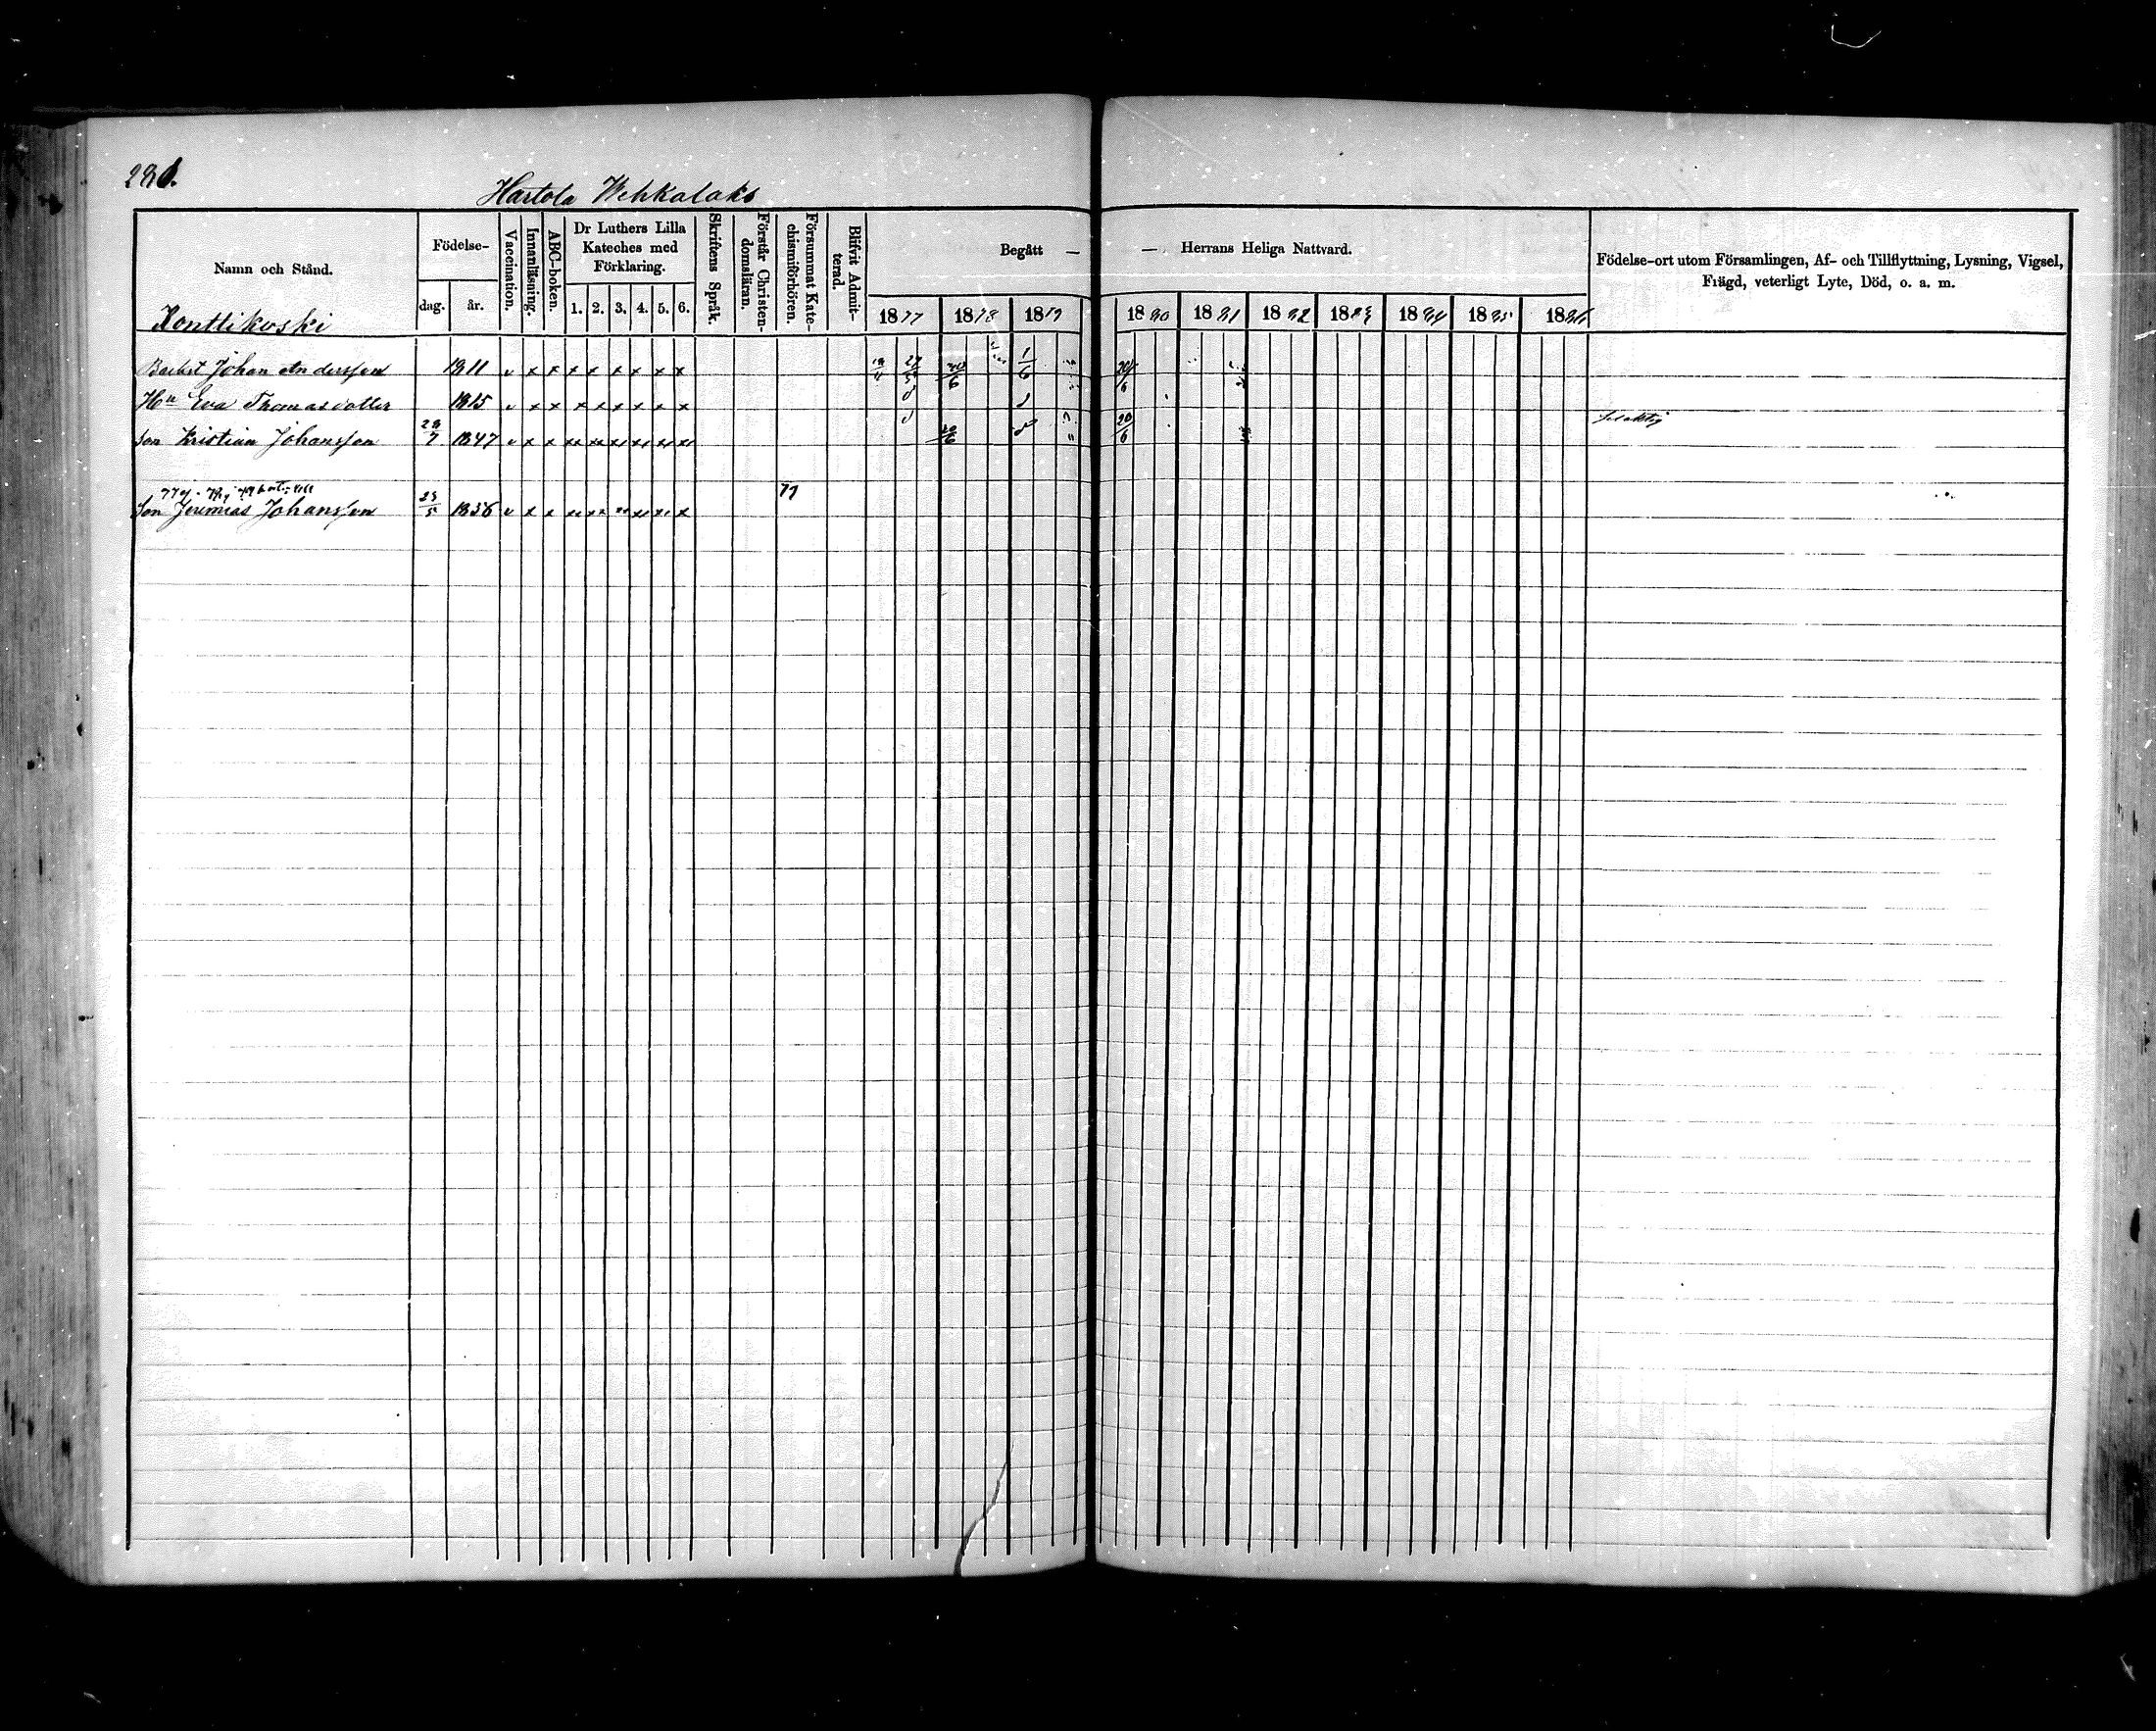 Hartola Wehkalaks
Namn och Stånd.
Födelse-
dag.
år.
Vaccination.
Innanläsning.
ABC-boken.
Dr Luthers Lilla
Kateches med
Förklaring.
1. 2. 3. 4. 5. 6.
Skriftens Språk.
Förstår Christen-
domsläran.
Försummat Kate-
chismiförhören.
Blifvit Admit-
terad.
Begått — — Herrans Heliga Nattvard.
1877 1878 1879 1880 1881 1882 1883 1884 1885 1886
Födelse-ort utom Församlingen, Af- och Tillflyttning, Lysning, Vigsel,
Frägd, veterligt Lyte, Död, o. a. m.
Konttikoski
Johan Andersson 1811 v x x x x x x x x 1/6 20/6
Hu Eva Thomasdotter 1815 v x x x x x x x x
Son Kristian Johansson 28/7 1847 v x x xx xx xx xx xx xx 20/6 20/6
77
Son Jeremias Johansson 1856 v x x xx xx xx xx xx x